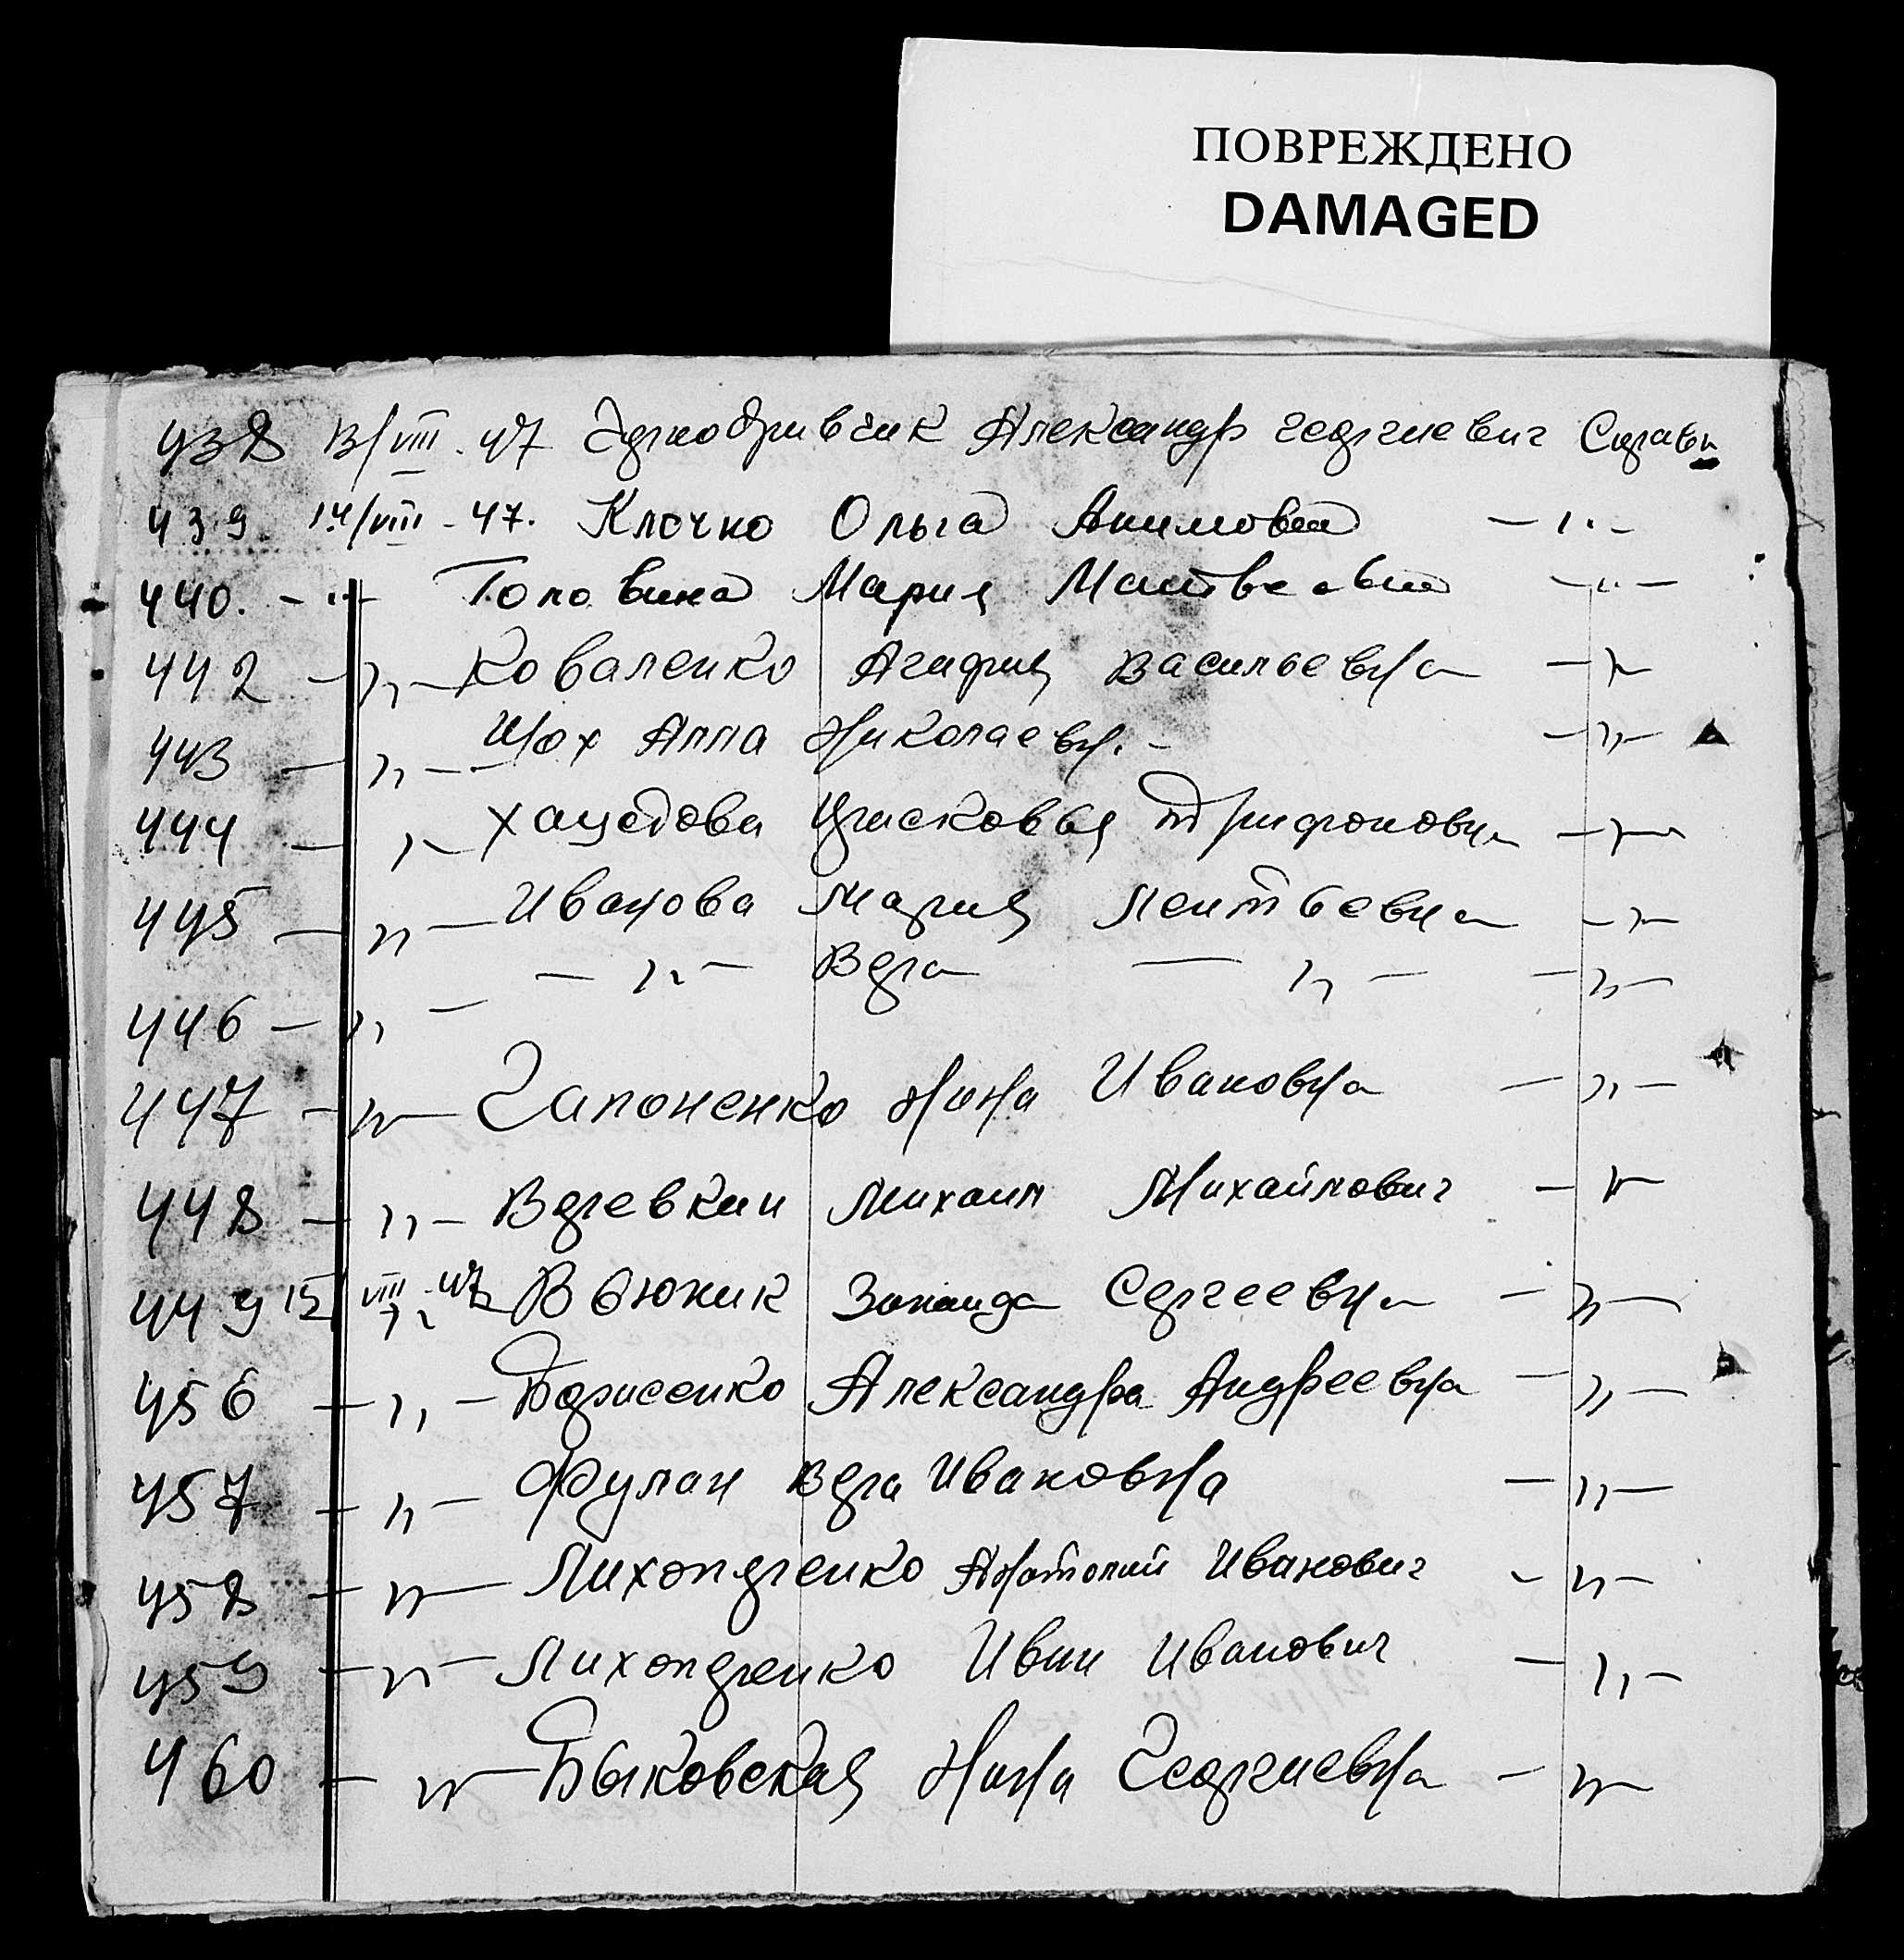 ПОВРЕЖДЕНО
DAMAGED
438 13/VIII - 47 Чернобривчик Александр Георгиевич Справки
439. 14/VIII - 47. Клочко Ольга Акимовна — " —
440. — " — Головина Мария Матвеевна — " —
442 — " — Коваленко Агафия Васильевна — " —
443 — " — Шох Алла Николаевн. — — " —
444 — " — Прасковья Трифоновна — " —
445 — " — Иванова Мария Леитьевна — " —
— " — Вера — " — — " —
446 — " —
447 — " — Гапоненко Нина Ивановна — " —
448 — " — Веревкин Михаил Михайлович — " —
449 15/VIII - 47 Вьюник Зинаида Сергеевна — " —
456 — " — Борисенко Александра Андреевна — " —
457 — " — Фулан Вера Ивановна — " —
458 — " — Лихопденко Анатолий Иванович — " —
459 — " — Лихопденко Иван Иванович — " —
460 — " — Быковская Нина Георгиевна — " —